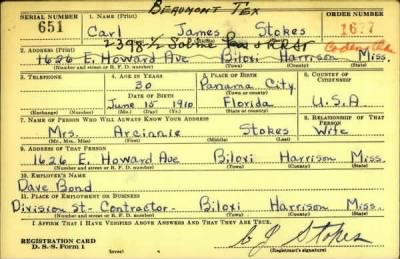 BEAUMONT TEX
SERIAL NUMBER 1. NAME (Print) ORDER NUMBER
651 Carl James Stokes 1677
(First) (Middle) (Last)
2398½ Sabine Pass
2. ADDRESS (Print)
1626 E. Howard Ave Biloxi Harrison Miss.
(Number and street or R. F. D. number) (Town) (County) (State)
3. TELEPHONE 4. AGE IN YEARS 5. PLACE OF BIRTH 6. COUNTRY OF CITIZENSHIP
30 Panama City
DATE OF BIRTH (Town or county)
June 15 1910 Florida U.S.A
(Exchange) (Number) (Mo.) (Day) (Yr.) (State or country)
7. NAME OF PERSON WHO WILL ALWAYS KNOW YOUR ADDRESS 8. RELATIONSHIP OF THAT PERSON
Mrs. Arcinnie Stokes Wife
(Mr., Mrs., Miss) (First) (Middle) (Last)
9. ADDRESS OF THAT PERSON
1626 E. Howard Ave Biloxi Harrison Miss
(Number and street or R. F. D. number) (Town) (County) (State)
10. EMPLOYER'S NAME
Dave Bond
11. PLACE OF EMPLOYMENT OR BUSINESS
Division St- Contractor- Biloxi Harrison Miss.
(Number and street or R. F. D. number) (Town) (County) (State)
I AFFIRM THAT I HAVE VERIFIED ABOVE ANSWERS AND THAT THEY ARE TRUE.
REGISTRATION CARD
D. S. S. FORM 1
C J Stokes
(Registrant's signature)